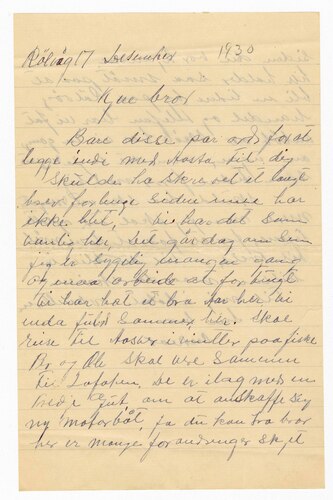 Rølvåg 17 Desember 1930
Kjære bror
Bare disse par ord for at
legge inde med Aasta til dig
Skulde ha skrevet et langt
brev for lenge siden men har
ikke blit, vi har det som
vanlig her, det går dag om sen
jeg er sygelig mangen gang
og maa arbeide at for tungt
vi har hat et bra høst her vi
enda fuld Sommer her. Skal
reise til
Per og Ole skal vere sammen
til Lofoten, De er idag med en
om at anskaffe sig
ny motorbåt, ja du kan tro bror
her er mange forandringer skjet